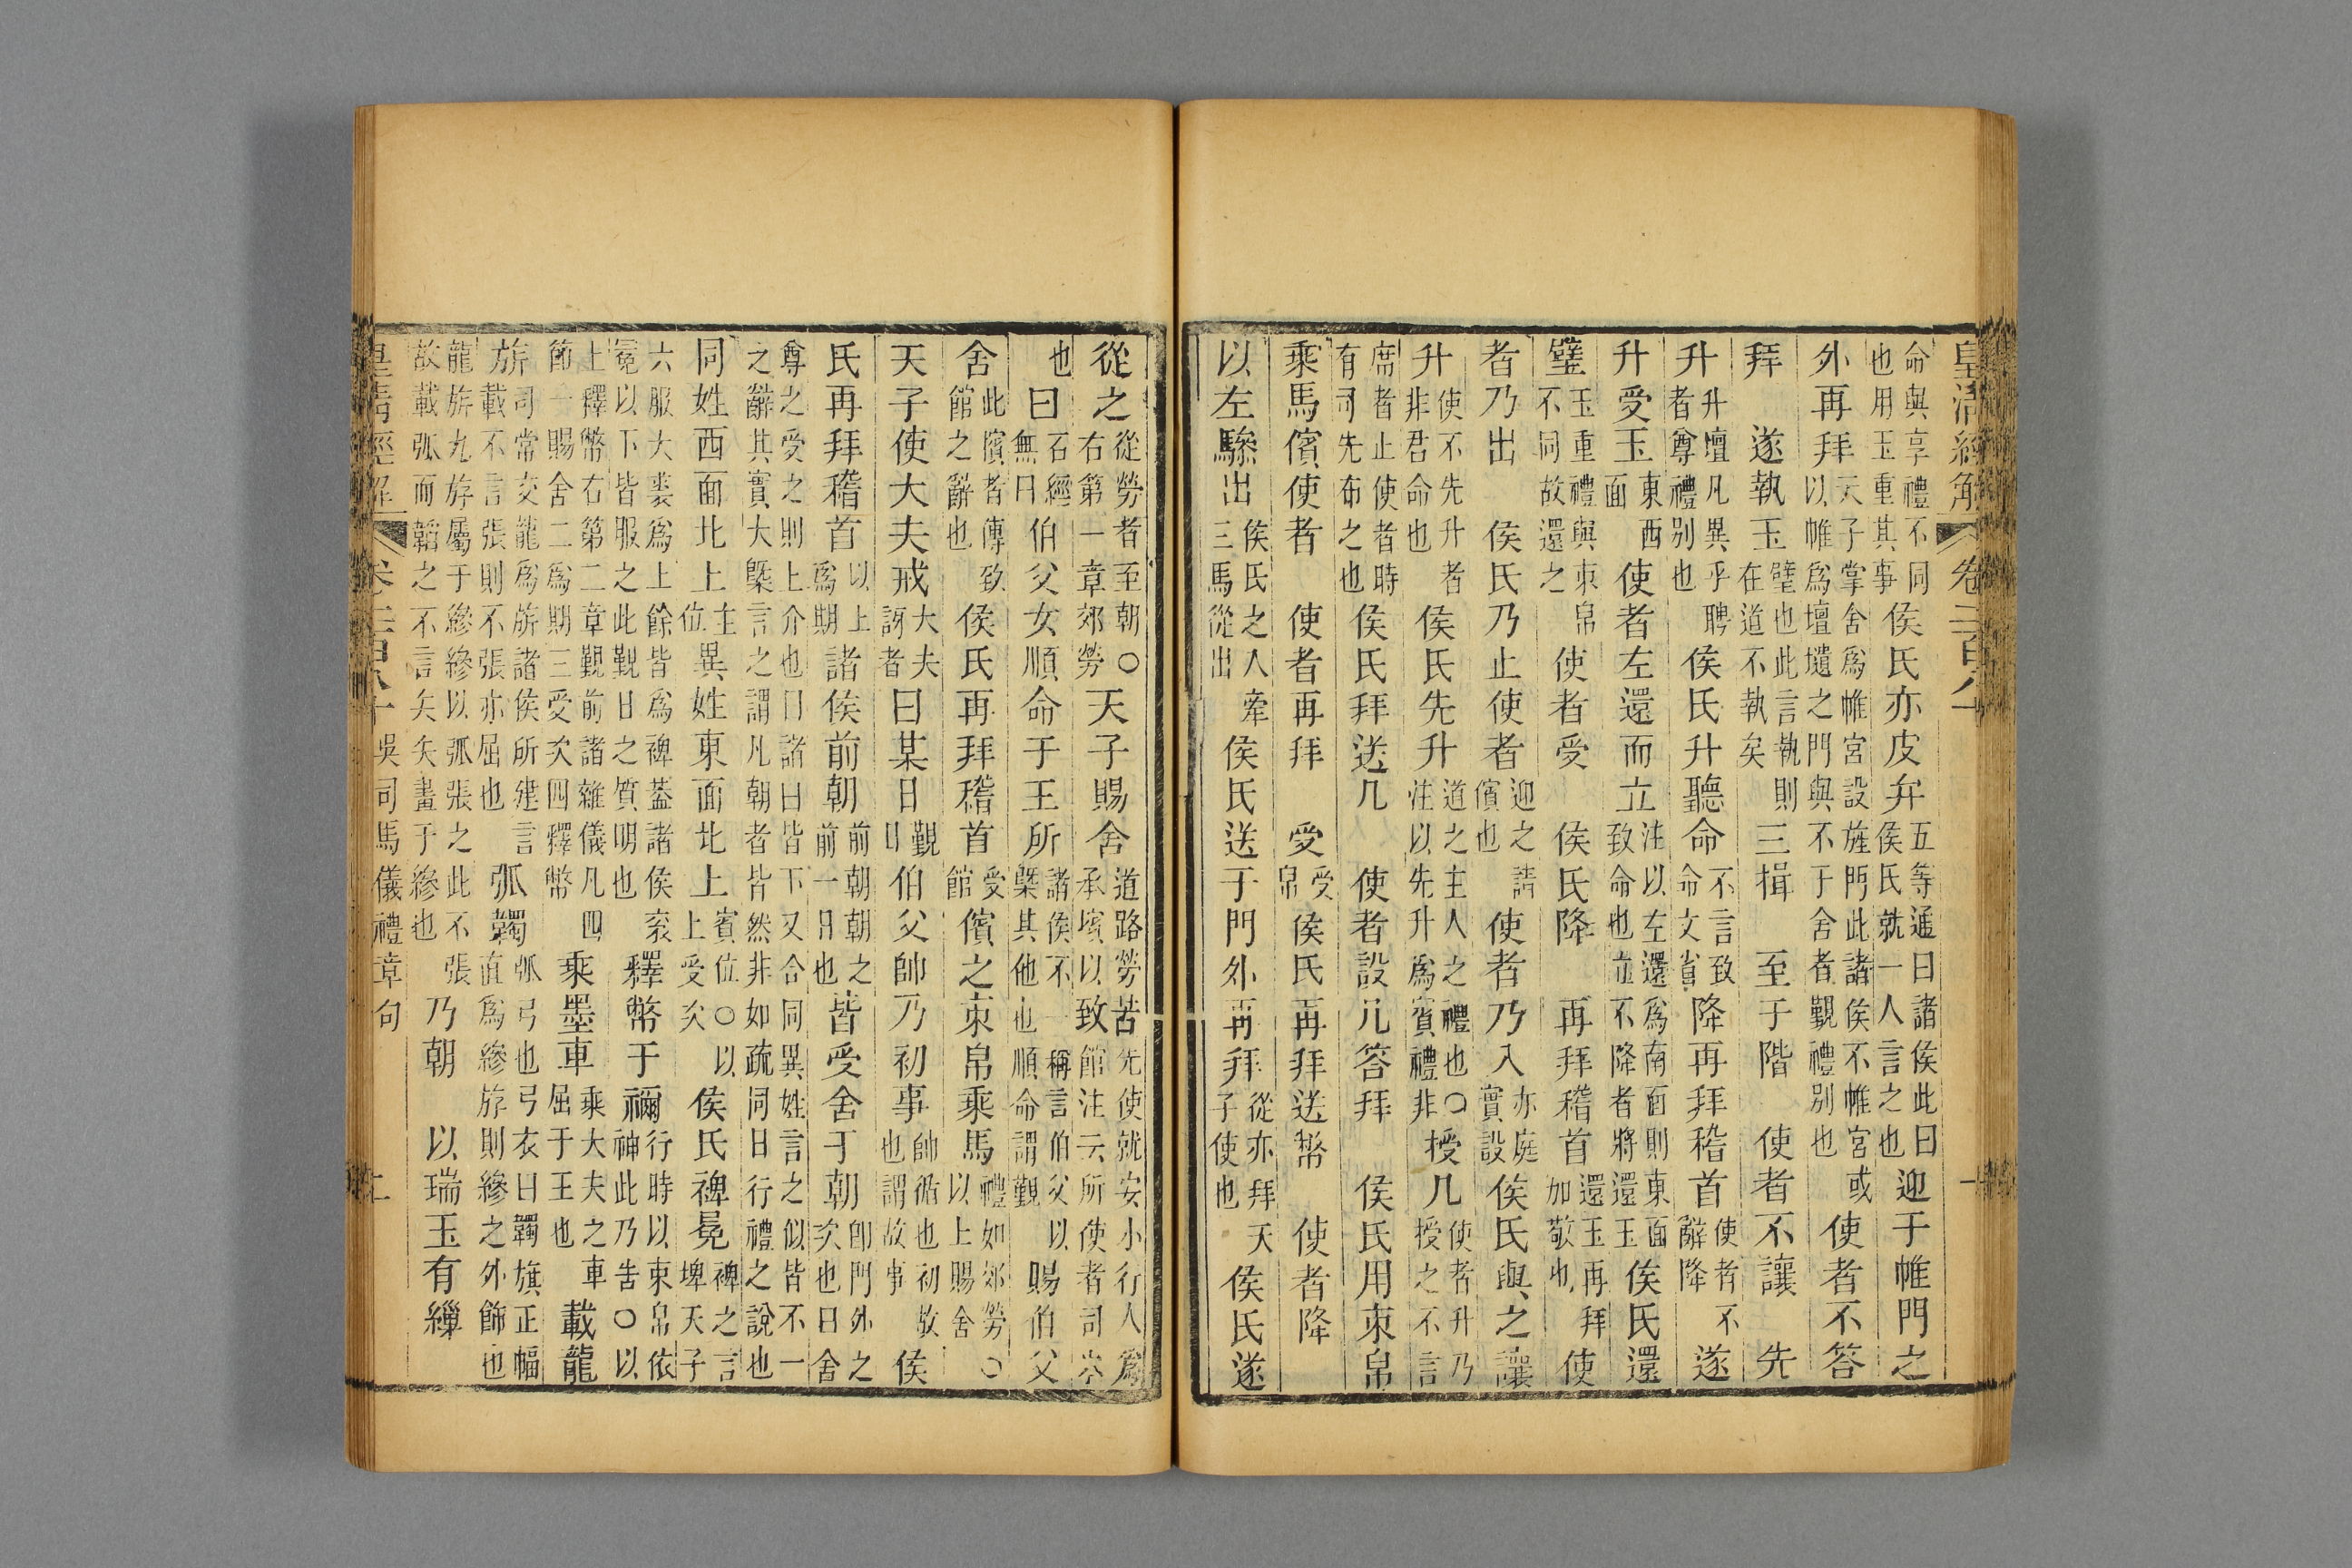 皇清經解 卷二百八十
命與享禮不同也用玉重其事侯氏亦皮弁五等通曰諸侯此曰侯氏就一人言之也迎于帷門之
外再拜天子掌舍爲帷宮設旌門此諸侯不帷宮或以帷爲壇壝之門與不于舍者覲禮别也使者不答
拜遂執玉璧也此言執則在道不執矣三揖至于階使者不讓先
升升壇凡異乎聘者尊禮别也侯氏升聽命不言致命文省降再拜稽首使者不辭降遂
升受玉東西面使者左還而立注以左還爲南面則東面致命也立不降者將還玉侯氏還
璧玉重禮與束帛不同故還之使者受侯氏降再拜稽首還玉再拜加敬也使
者乃出侯氏乃止使者迎之請儐也使者乃入亦庭實設侯氏與之讓
升使不先升者非君命也侯氏先升道之主人之禮也○注以先升爲賓禮非授几使者升乃授之不言
席者止使者時有司先布之也侯氏拜送几使者設几答拜侯氏用束帛
乘馬儐使者使者再拜受受帛侯氏再拜送幣使者降
以左驂出侯氏之人牽三馬從出侯氏送于門外再拜從亦拜天子使也侯氏遂
從之從勞者至朝○右第一章郊勞天子賜舍道路勞苦先使就安小行人爲承擯以致館注云所使者司空
也曰石經無曰伯父女順命于王所諸侯不一稱言伯父以槩其他也順命謂覲賜伯父
舍此擯者傳致館之辭也侯氏再拜稽首受館儐之束帛乘馬禮如郊勞○以上賜舍
天子使大夫戒大夫訝者曰某日覲日伯父帥乃初事帥循也初故也謂故事侯
氏再拜稽首以上爲期諸侯前朝前朝朝之前一日也皆受舍于朝卽門外之次也曰舍
尊之受之則上介也曰諸曰皆下又合同異姓言之似皆不一之辭其實大槩言之謂凡朝者皆然非如疏同日行禮之說也
同姓西面北上主位異姓東面北上賓位○以上受次侯氏裨冕裨之言埤天子
六服大裘爲上餘皆爲裨葢諸侯衮冕以下皆服之此覲日之質明也釋幣于禰行時以束帛依神此乃告○以
上釋幣右第二章覲前諸雜儀凡四節一賜舍二爲期三受次四釋幣乘墨車乘大夫之車屈于王也載龍
旂司常交龍爲旂諸侯所建言載不言張則不張亦屈也弧韣弧弓也弓衣曰韣旗正幅直爲縿斿則縿之外飾也
龍旂九斿屬于縿縿以弧張之此不張故載弧而韜之不言矢矢畫于縿也乃朝以瑞玉有繅
皇清經解 卷二百八十 吳司馬儀禮章句 十二